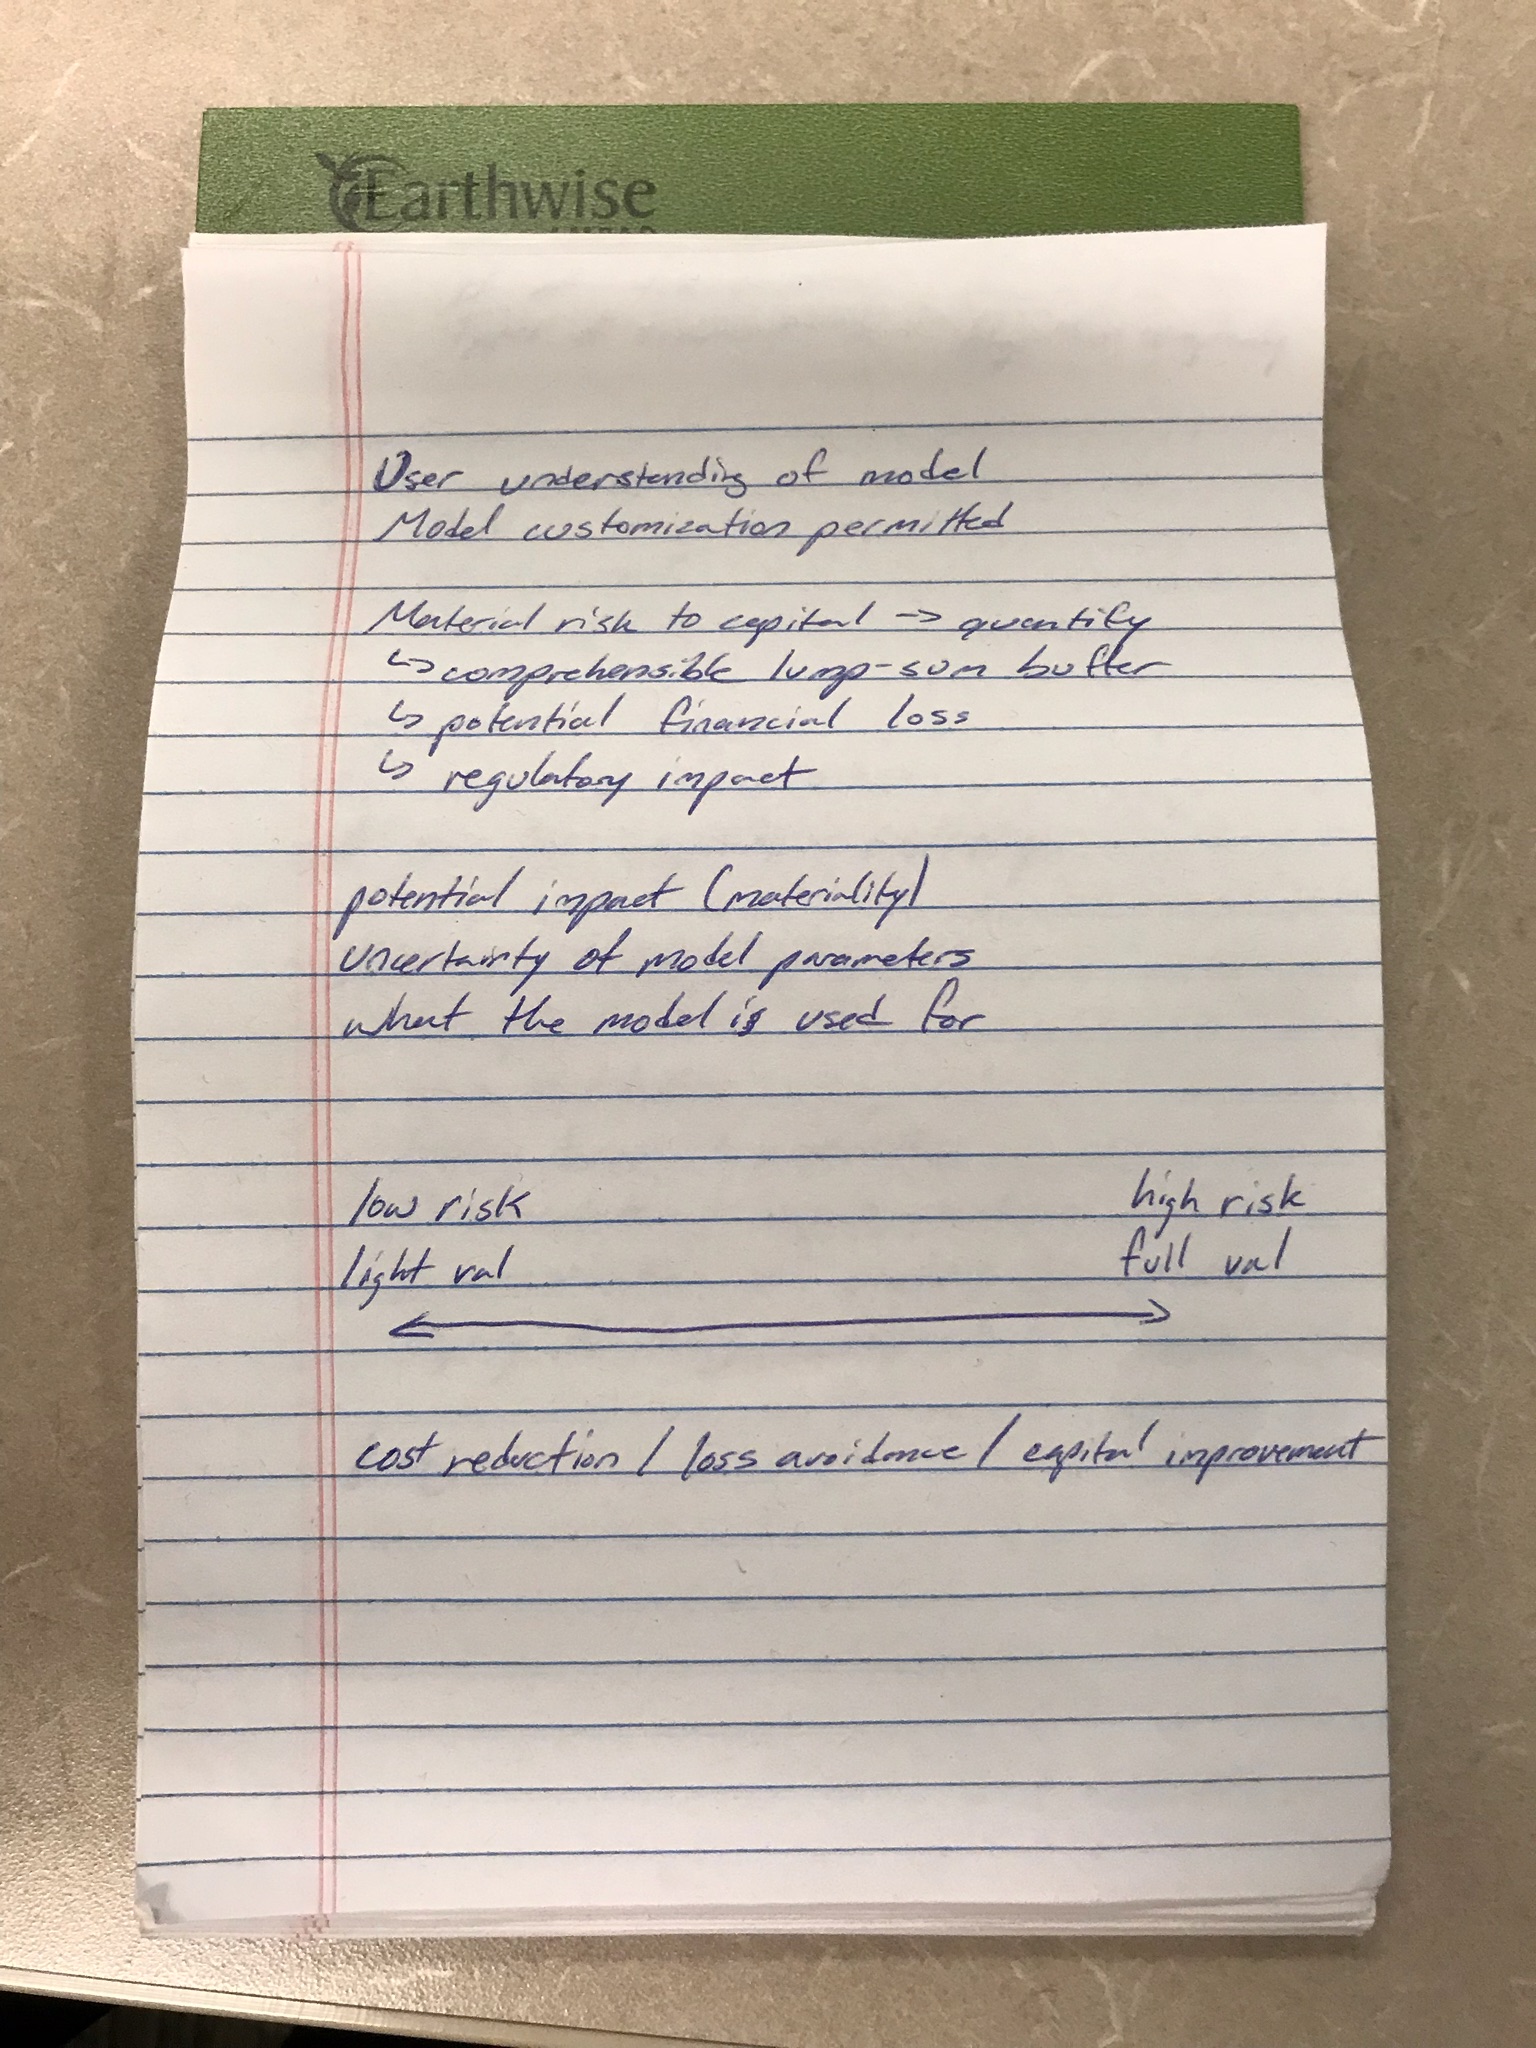 Earthwise
User understanding of model
Model customization permitted
Material risk to capital → quantify
↳ comprehensible lump-sum buffer
↳ potential financial loss
↳ regulatory impact
potential impact (materiality)
uncertainty of model parameters
what the model is used for
low risk high risk
light val full val
cost reduction / loss avoidance / capital improvement